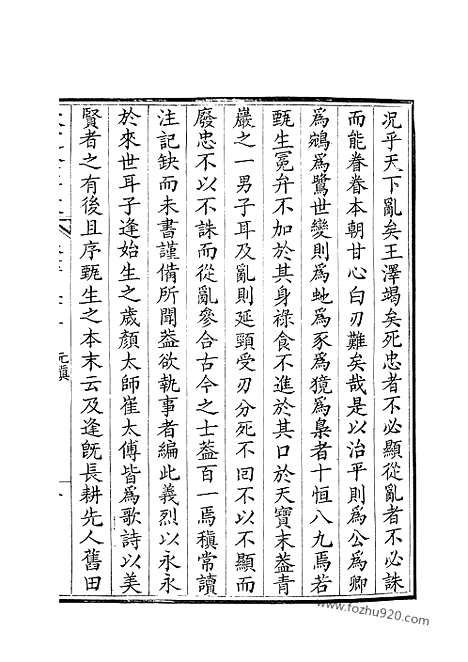 况乎天下亂矣王澤竭矣死忠者不必顯從亂者不必誅
而能眷眷本朝甘心白刃難矣哉是以治平則為公為卿
為鵷為鷺世變則為虵為豕為獍為梟者十恒八九焉若
甄生冕弁不加於其身祿食不進於其口於天寶末葢青
巖之一男子耳及亂則延頸受刃分死不回不以不顯而
廢忠不以不誅而從亂參合古今之士葢百一焉稹常讀
注記缺而未書謹備所聞葢欲執事者編此義烈以永永
於來世耳子逢始生之歲顏太師崔太傅皆為歌詩以美
賢者之有後且序甄生之本末云及逢旣長耕先人舊田
元稹
www.fozhu920.com